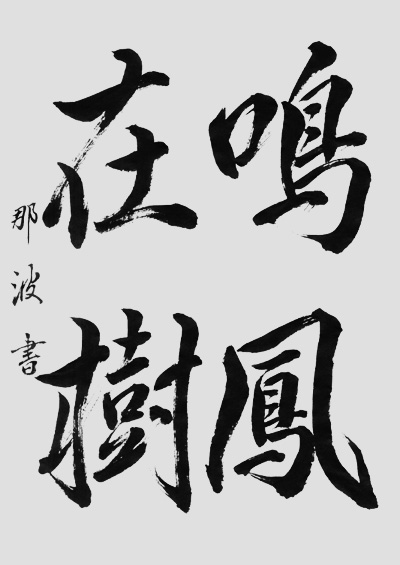 鳴鳳
在樹
那波書